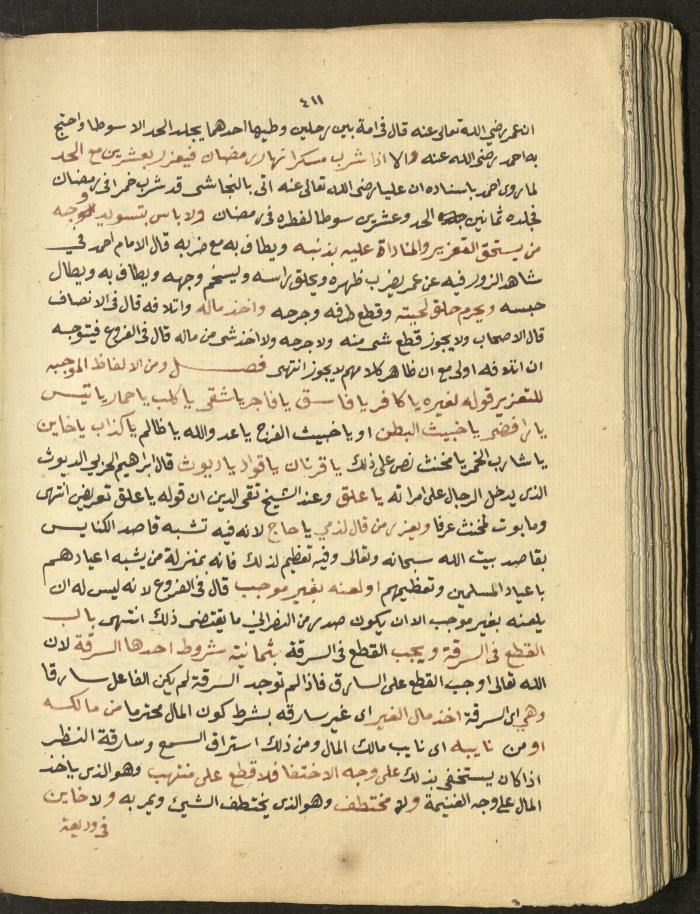 ٤١١
ان عمر رضي الله تعالى عنه قال في امة بين رجلين وطيها احدهما يجلد الحد الا سوطا واحتج
به احمد رضي الله عنه والا اذا شرب مسكرا نهار رمضان فيعزر بعشرين مع الحد
لما روى احمد باسناده ان عليا رضى الله تعالى عنه اتى بالنجاشى قد شرب خمرا في رمضان
فجلده ثمانين الحد وعشرين سوطا لفطره في رمضان ولا باس بتسويد وجه
من يستحق التعزير والمناداة عليه بذنبه ويطاف به مع ضربه قال الامام احمد في
شاهد الزور فيه عن عمر يضرب ظهره ويحلق راسه ويسخم وجهه ويطاف به ويطال
حبسه ويحرم حلق لحيته وقطع طرفه وجرحه واخذ ماله واتلافه قال في الانصاف
قال الاصحاب ولا يجوز قطع شى منه ولا جرحه ولا اخذ شى من ماله قال في الفروع فيتوجه
ان اتلافه اولى مع ان ظاهر كلامهم لا يجوز انتهى فصل ومن الالفاظ الموجبه
للتعزير قوله لغيره يا كافر يا فاسق يا فاجر يا شقي يا كلب يا حمار يا تيس
يا رافضى يا خبيث البطن او يا خبيث الفرج يا عدو الله يا ظالم يا كذاب يا خاين
يا شارب الخمر يا مخنث نص على ذلك يا قرنان يا قواد يا ديوث قال ابراهيم الحربي الديوث
الذى يدخل الرجال على امراته يا علق وعند الشيخ تقى الدين ان قوله يا علق تعريض انتهى
ومابوت لمخنث عرفا ويعزر من قال لذمي يا حاج لانه فيه تشبه قاصد الكنايس
بقاصد بيت الله سبحانه وتعالى وفيه تعظيم لذلك فانه بمنزلة من يشبه اعيادهم
باعياد المسلمين وتعظيمهم او لعنه بغير موجب قال في الفروع لانه ليس له ان
يلعنه بغير موجب الا ان يكون صدر من النصراني ما يقتضى ذلك انتهى باب
القطع في السرقة ويجب القطع في السرقة بثمانية شروط احدها السرقة لان
الله تعالى اوجب القطع على السارق فاذا لم توجد السرقة لم يكن الفاعل سارقا
وهي اى السرقة اخذ مال الغير اى غير سارقه بشرط كون المال محترما من مالكه
او من نايبه اى نايب مالك المال ومن ذلك استراق السمع وسارقة النظر
اذا كان يستخفى بذلك على وجه الاختفا فلا قطع على منتهب وهو الذى ياخذ
المال على وجه الغنيمة ولا مختطف وهو الذى يختطف الشيئ ويمر به ولا خاين
في وديعة